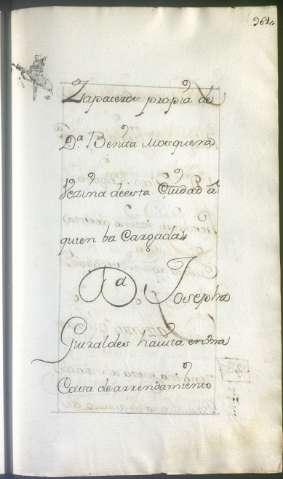 Zapatero propia de
D.ª Benita Mosquera
Vezina de esta Ciudad à
quien ba Cargada
D. Joseph
Guiraldes havita en una
Casa de arrendamiento